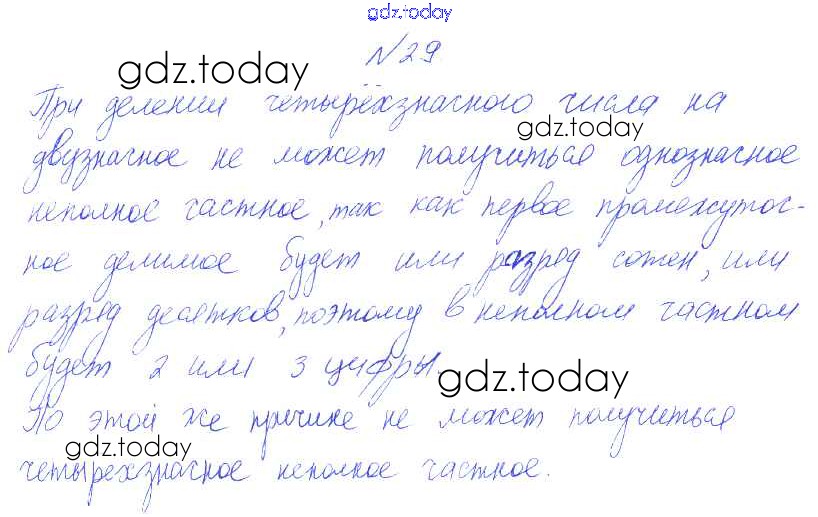 gdz.today
№29
gdz.today
При делении четырёхзначного числа на
gdz.today
двузначное не может получиться однозначное
неполное частное, так как первое промежуточ-
ное делимое будет или разряд сотен, или
разряд десятков, поэтому в неполном частном
будет 2 или 3 цифры.
gdz.today
По этой же причине не может получиться
gdz.today
четырехзначное неполное частное.